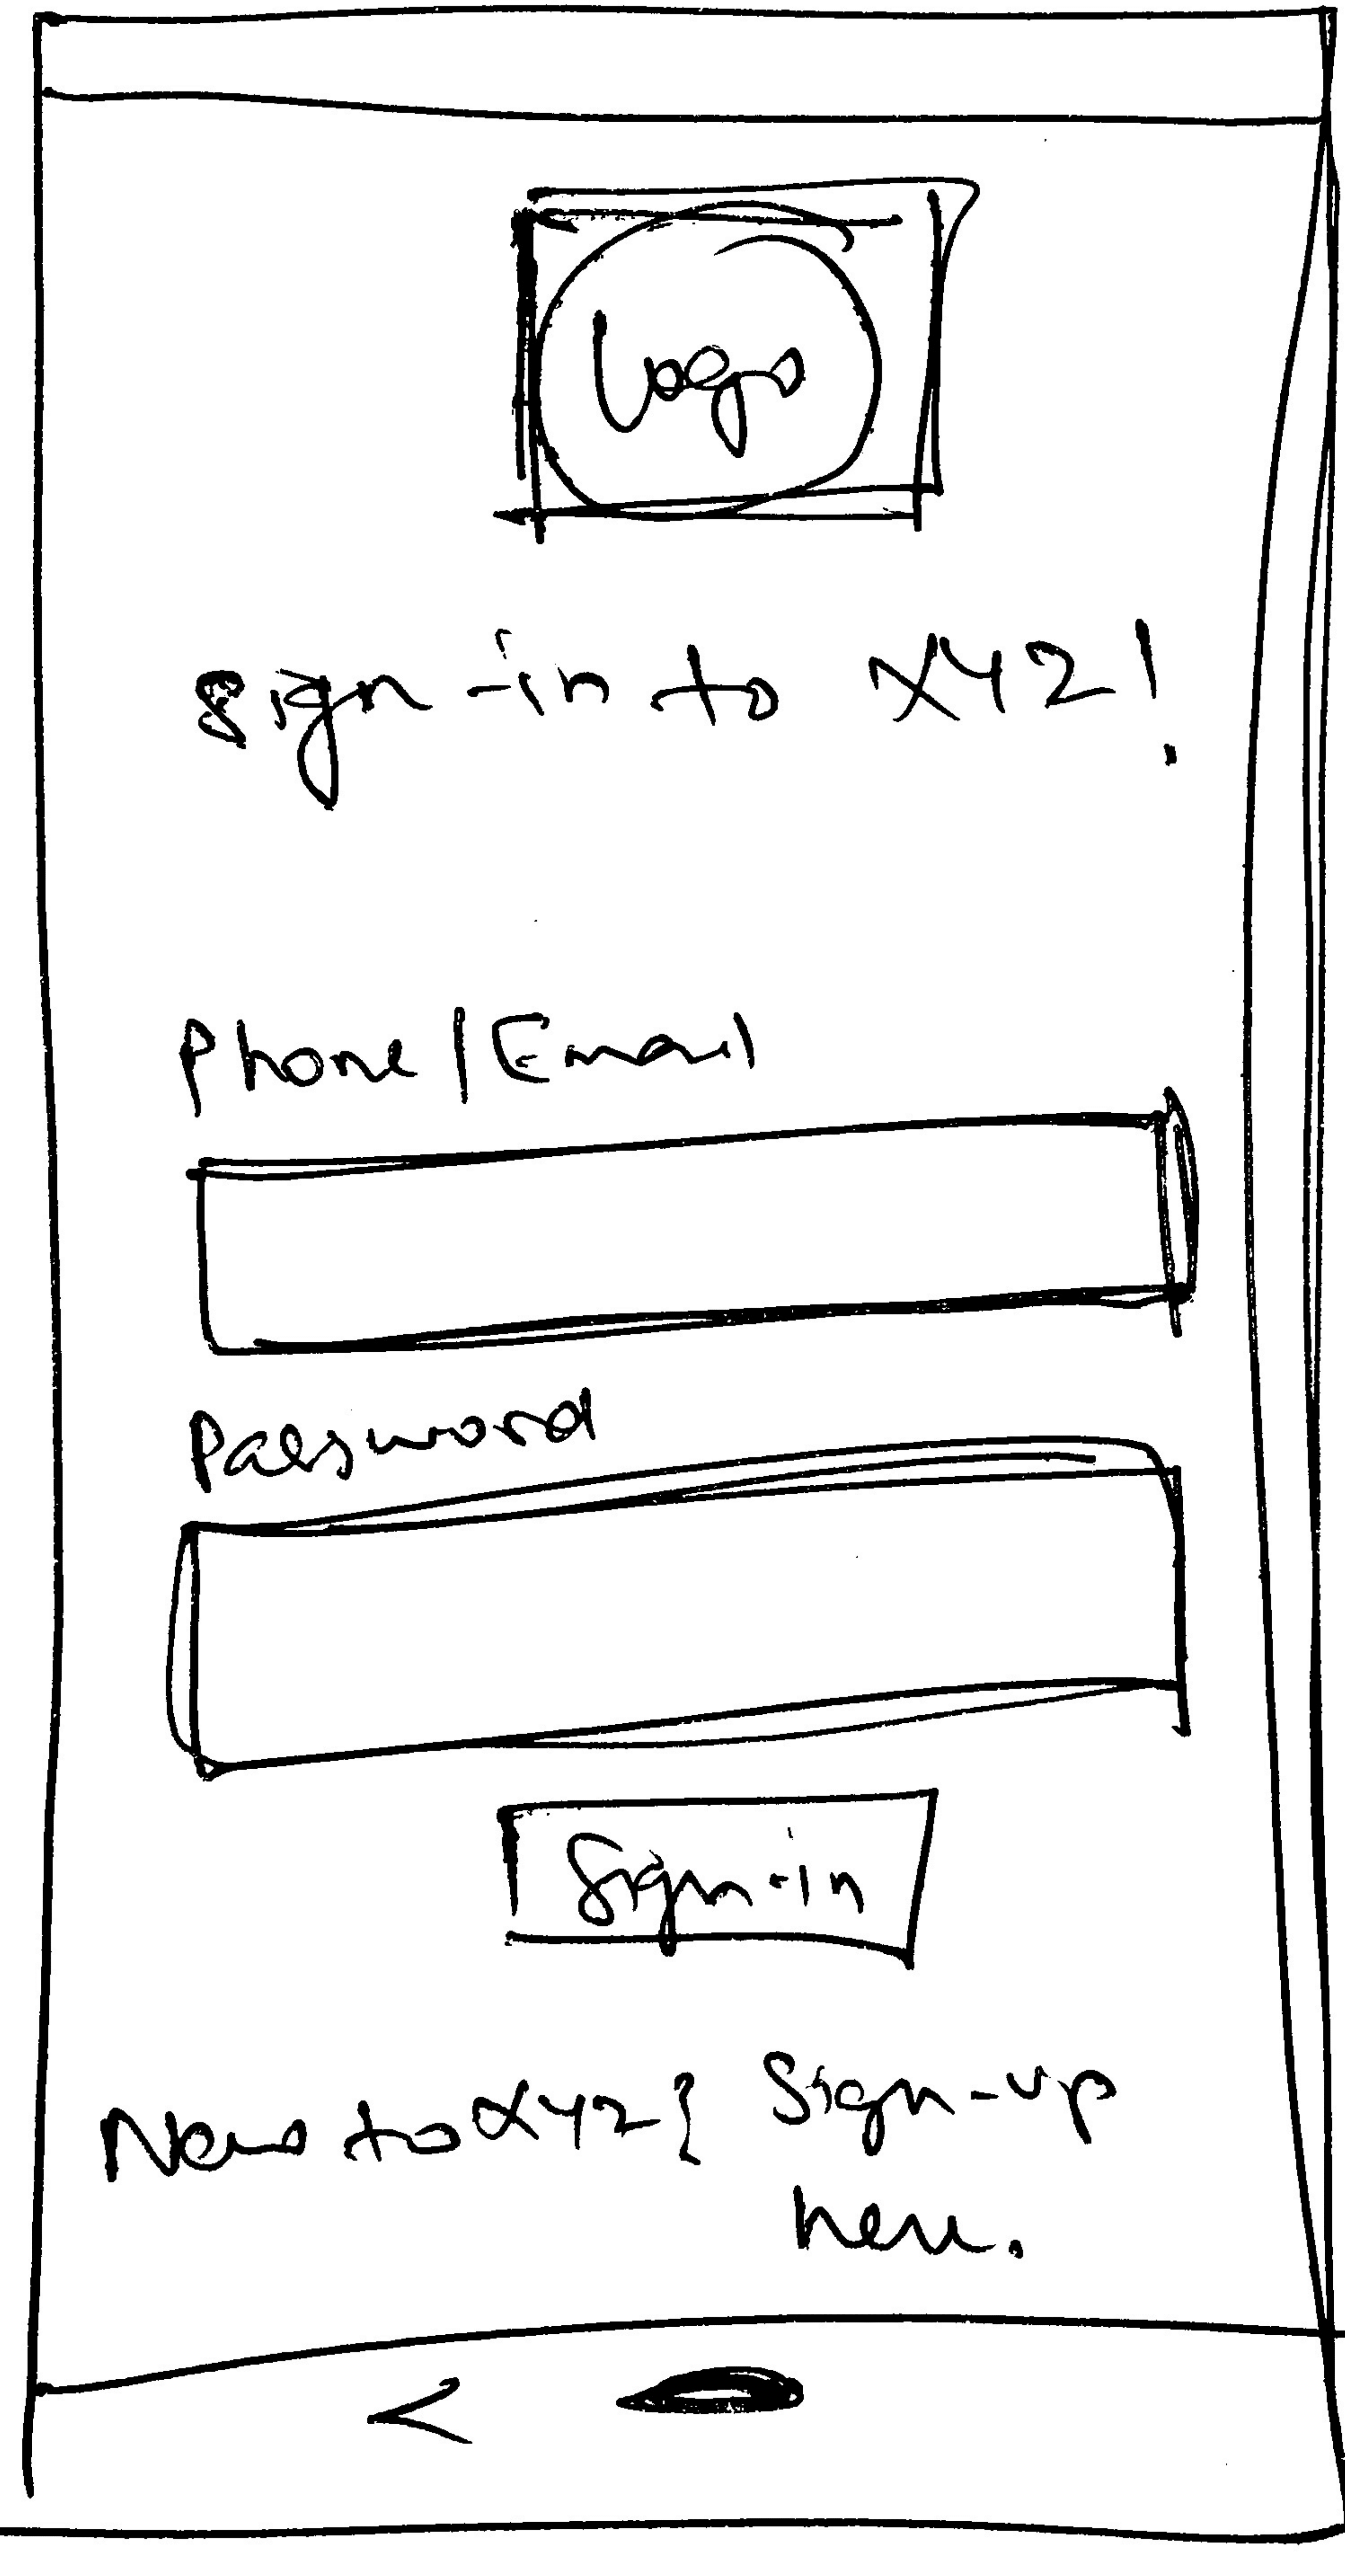 Logo
Sign-in to XYZ!
Phone/Email
Password
Sign-in
New to XYZ? Sign-up
here.